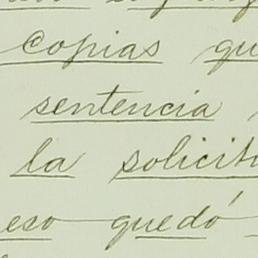 copias
sentencia
la solicit
eso quedó